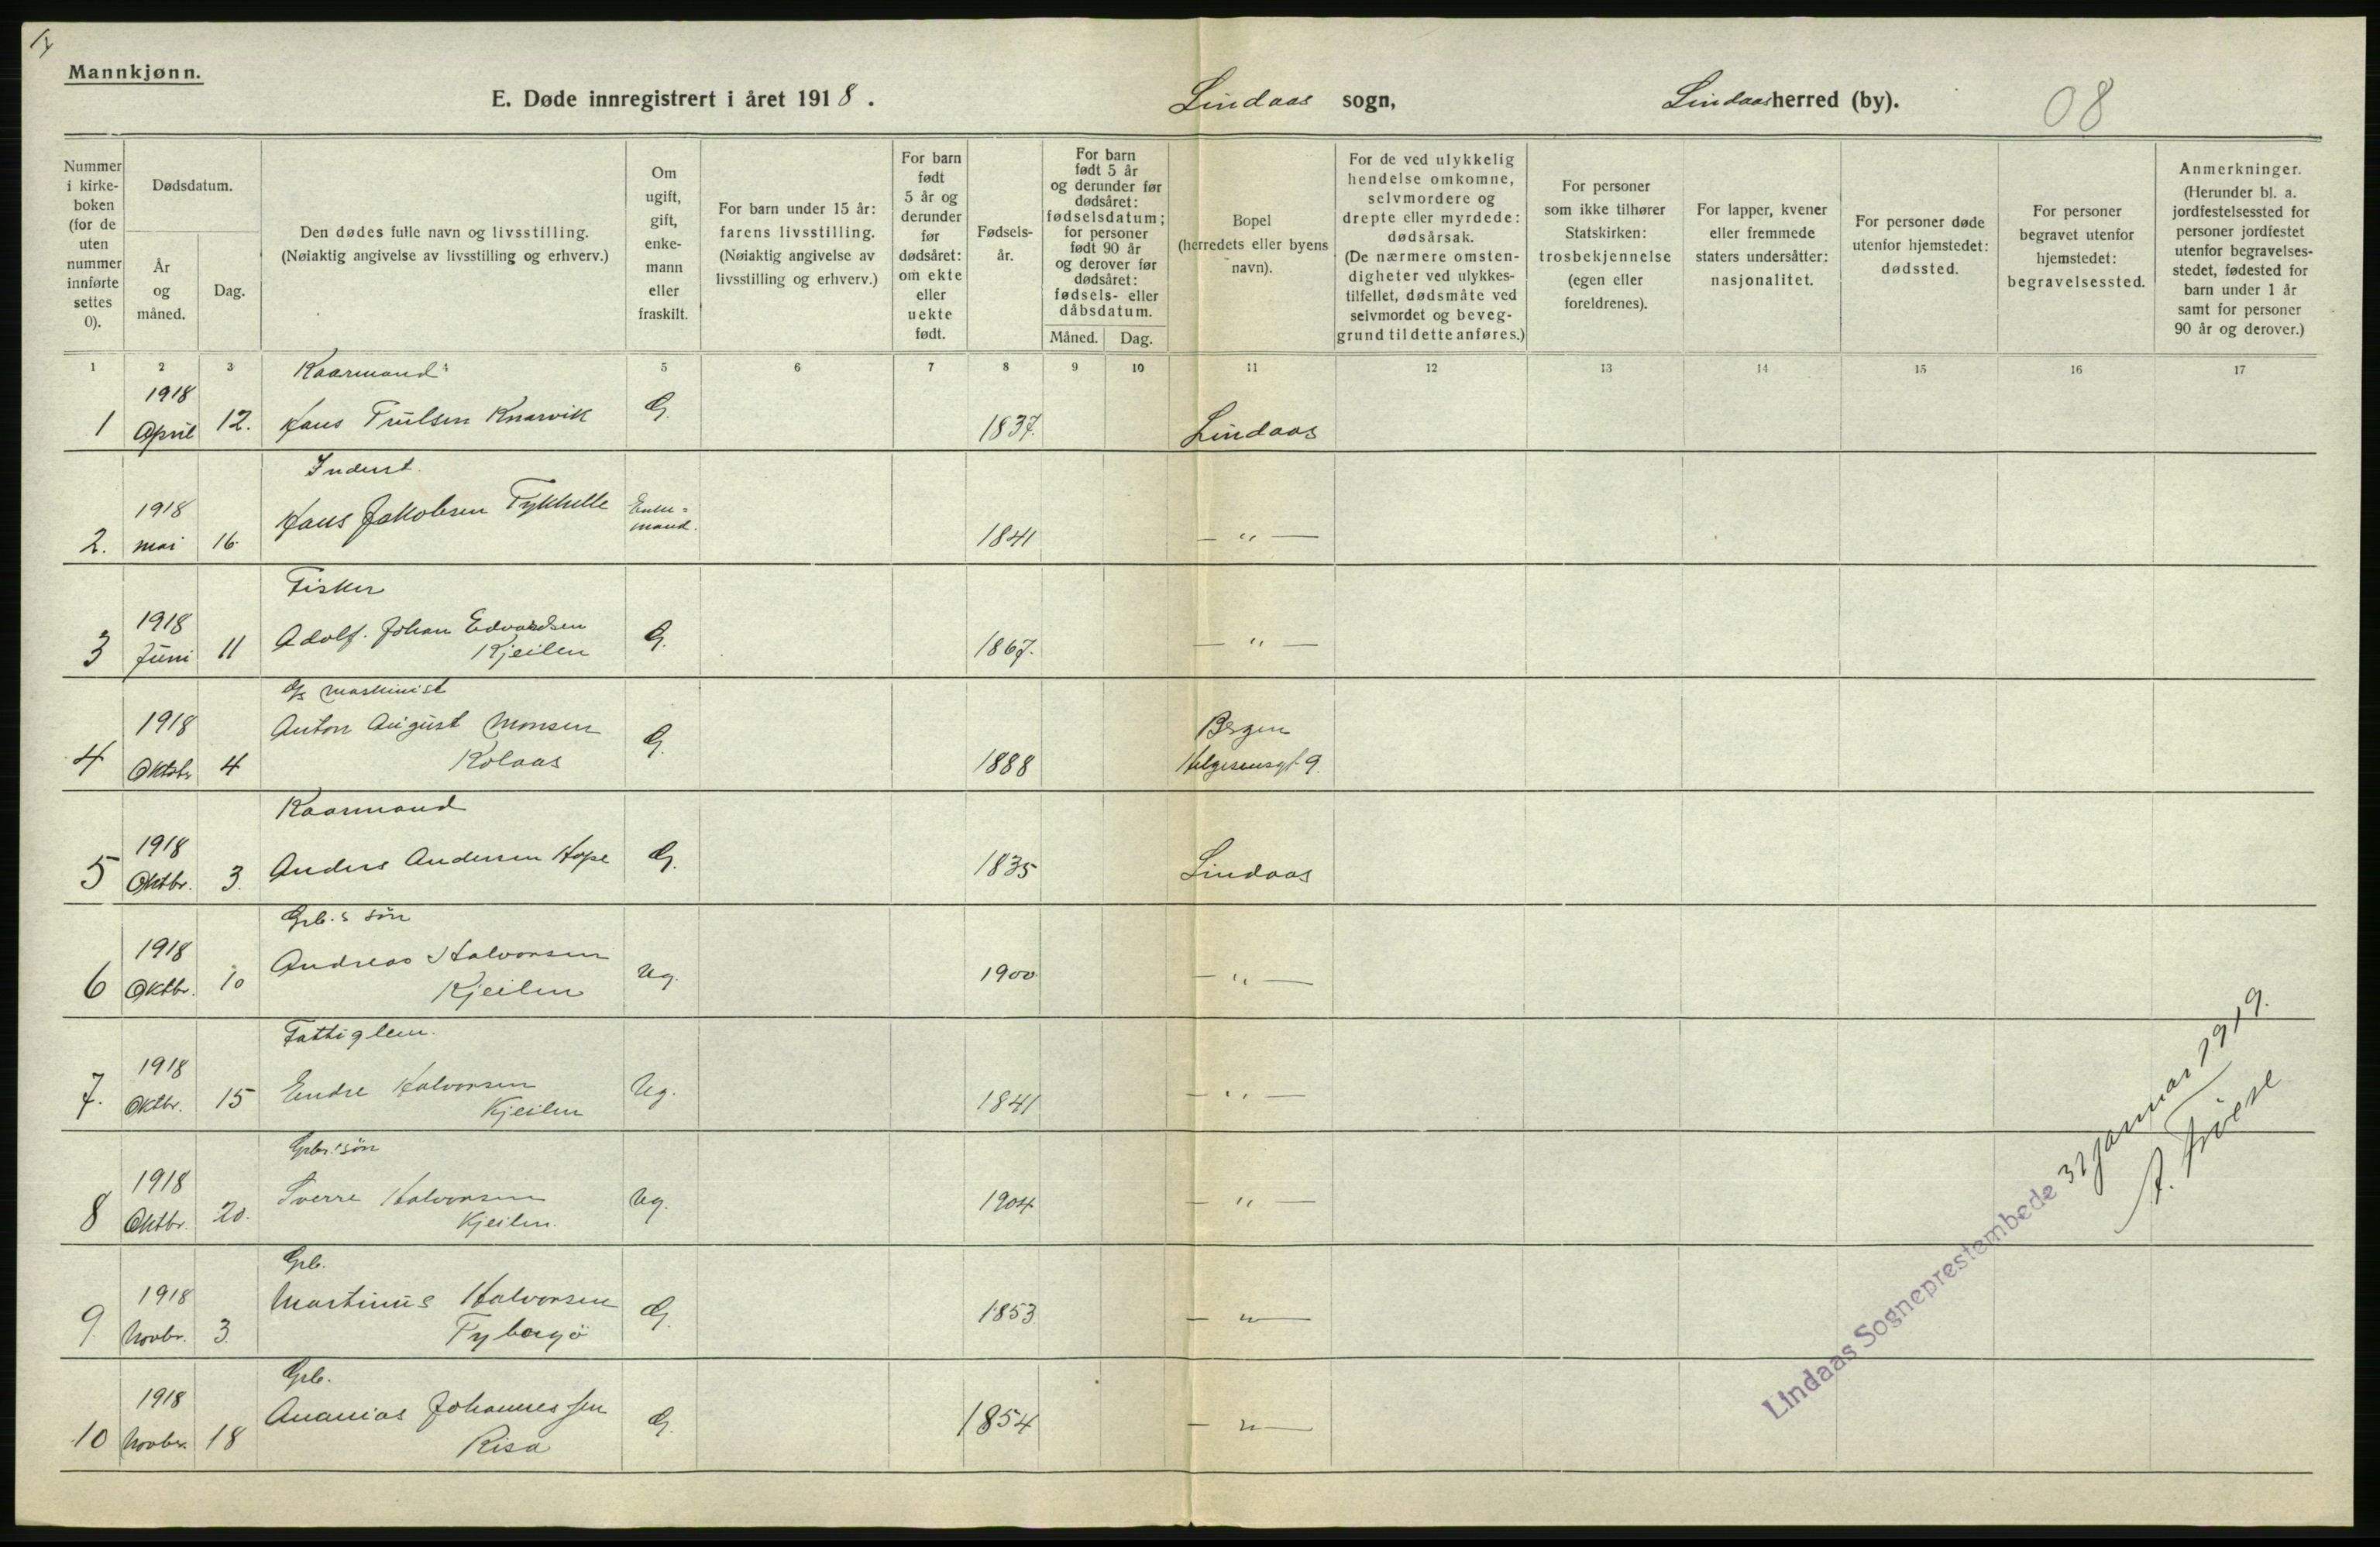 Mannkjønn.
E. Døde innregistrert i året 1918.
Lindaas sogn,
Lindaas herred (by).
08
Nummer i kirke-boken (for de uten nummer innførte settes 0).
Dødsdatum.
År og måned.
Dag.
Den dødes fulle navn og livsstilling. (Nøiaktig angivelse av livsstilling og erhverv.)
Om ugift, gift, enke-mann eller fraskilt.
For barn under 15 år: farens livsstilling. (Nøiaktig angivelse av livsstilling og erhverv.)
For barn født 5 år og derunder før dødsåret: om ekte eller uekte født.
Fødsels-år.
For barn født 5 år og derunder før dødsåret: fødselsdatum; for personer født 90 år og derover før dødsåret: fødsels- eller dåbsdatum.
Måned.
Dag.
Bopel (herredets eller byens navn).
For de ved ulykkelig hendelse omkomne, selvmordere og drepte eller myrdede: dødsårsak. (De nærmere omsten-digheter ved ulykkes-tilfellet, dødsmåte ved selvmordet og beveg-grund til dette anføres.)
For personer som ikke tilhører Statskirken: trosbekjennelse (egen eller foreldrenes).
For lapper, kvener eller fremmede staters undersåtter: nasjonalitet.
For personer døde utenfor hjemstedet: dødssted.
For personer begravet utenfor hjemstedet: begravelsessted.
Anmerkninger. (Herunder bl. a. jordfestelsessted for personer jordfestet utenfor begravelses-stedet, fødested for barn under 1 år samt for personer 90 år og derover.)
1 2 3 5 6 7 8 9 10 11 12 13 14 15 16 17
Kaarmand
1 1918 April 12. Hans Trulsen Knarvik G. 1837. Lindaas
Inderst
2. 1918 mai 16 Hans Jakobsen Tykhelle Enke=mand. 1841 — " —
Fisker
3 1918 Juni 11 Adolf Johan Edvardsen Kjeilen G. 1867. — " —
maskinist
4 1918 Oktobr 4 Anton August Monsen Kolaas G. 1888 Bergen Helgesensgt 9.
Kaarmand
5 1918 Oktbr. 3. Anders Andersen Hope G. 1835 Lindaas
Grb.s søn
6 1918 Oktbr. 10 Andreas Halvorsen Kjeilen Ug. 1900 — " —
Fattiglem.
7. 1918 Oktbr. 15 Endre Halvorsen Kjeilen Ug. 1841 — " —
Gbr.s søn
8 1918 Oktbr. 20. Sverre Halvorsen Kjeilen. Ug. 1904 — " —
Grb.
9 1918 Novbr. 3. Martinus Halvorsen Fybergø G. 1853 — " —
Grb.
10 1918 Novbr. 18 Ananias Johannessen Risa G. 1854 — " —
Lindaas Sogneprestembede 31 januar 1919.